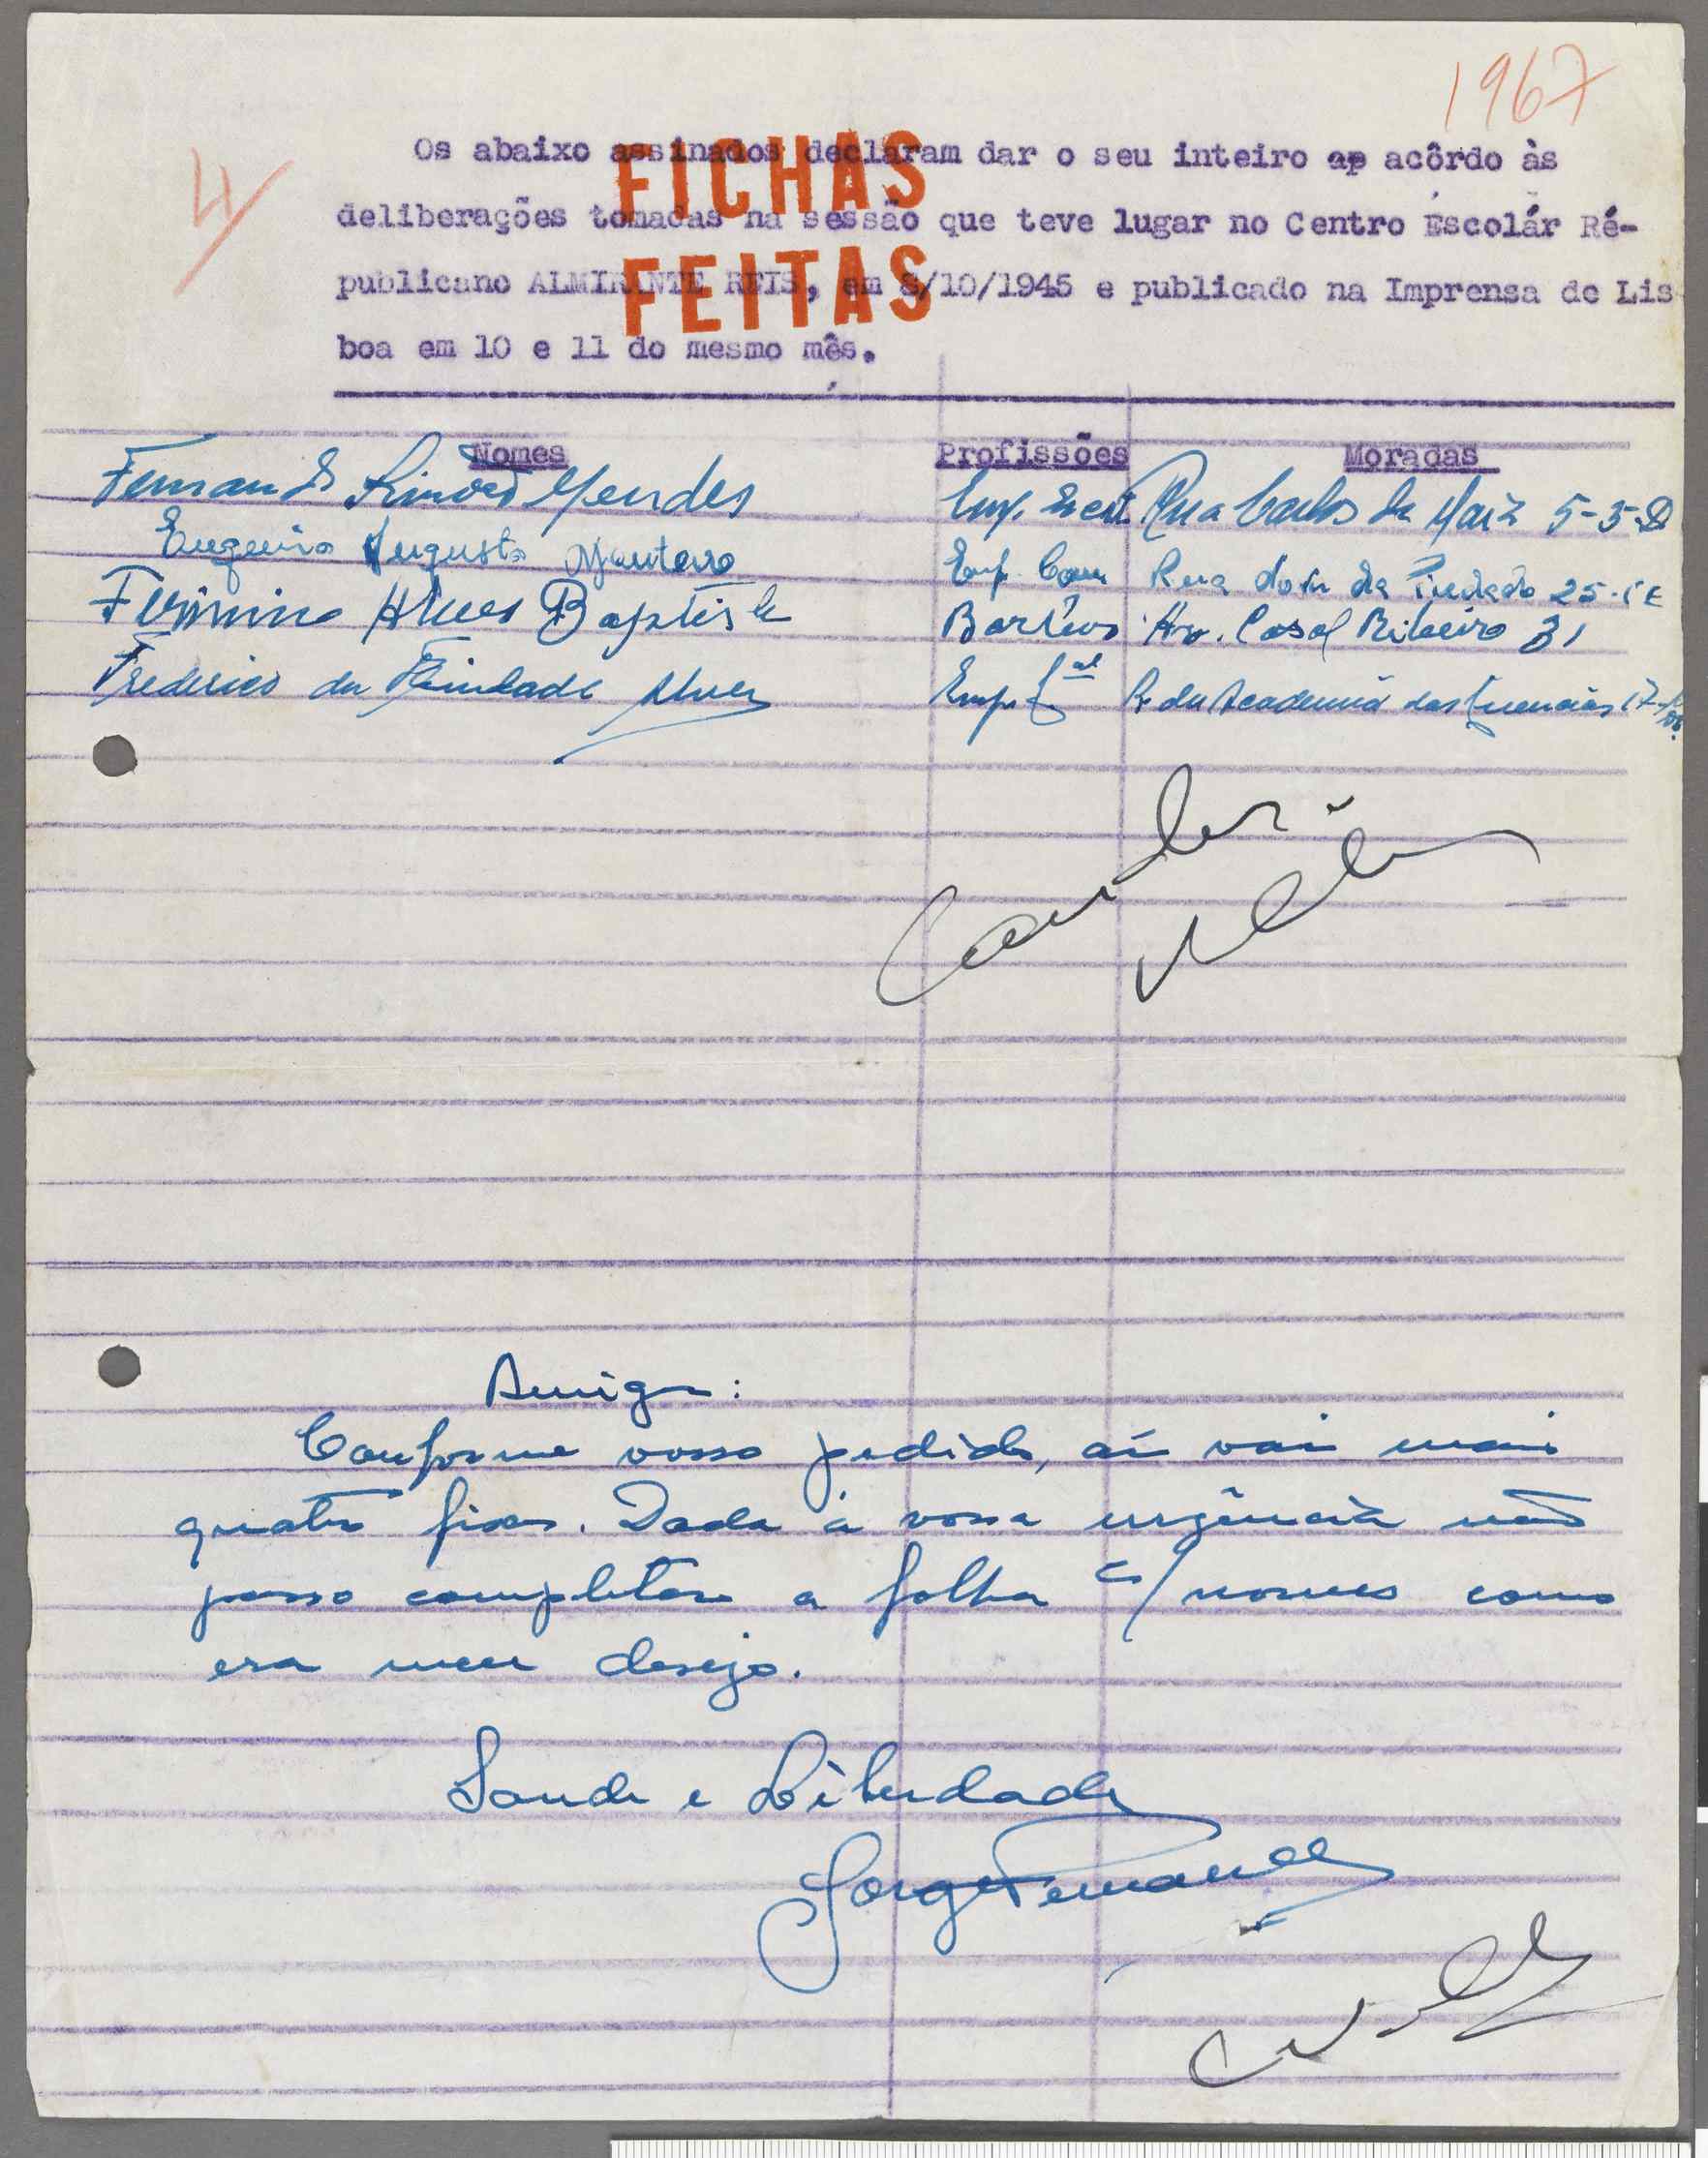 1967
4
Os abaixo assinados declaram dar o seu inteiro ap acôrdo às
deliberações tomadas na sessão que teve lugar no Centro Escolár Ré-
publicano ALMIRANTE REIS, em 8/10/1945 e publicado na Imprensa de Lis
boa em 10 e 11 do mesmo mês.
FICHAS
FEITAS
Nomes Profissões Moradas
Fernando Mendes Emp. Escrit. Rua Carlos da Maia 5-3-D
Eugenio Augusto Monteiro Emp. Com Rua da Piedade 25-1 E
Firmino Alves Baptista Av. Casal Ribeiro 31
Frederico da Trindade Alves Emp. R. da Academia das Ciencias 17
Amigo:
Conforme vosso pedido, aí vai mais
quatro fixas. Dada á vossa urgência não
posso completar a folha c/ nomes como
era meu desejo.
Saude e Liberdade
Jorge Fernandes